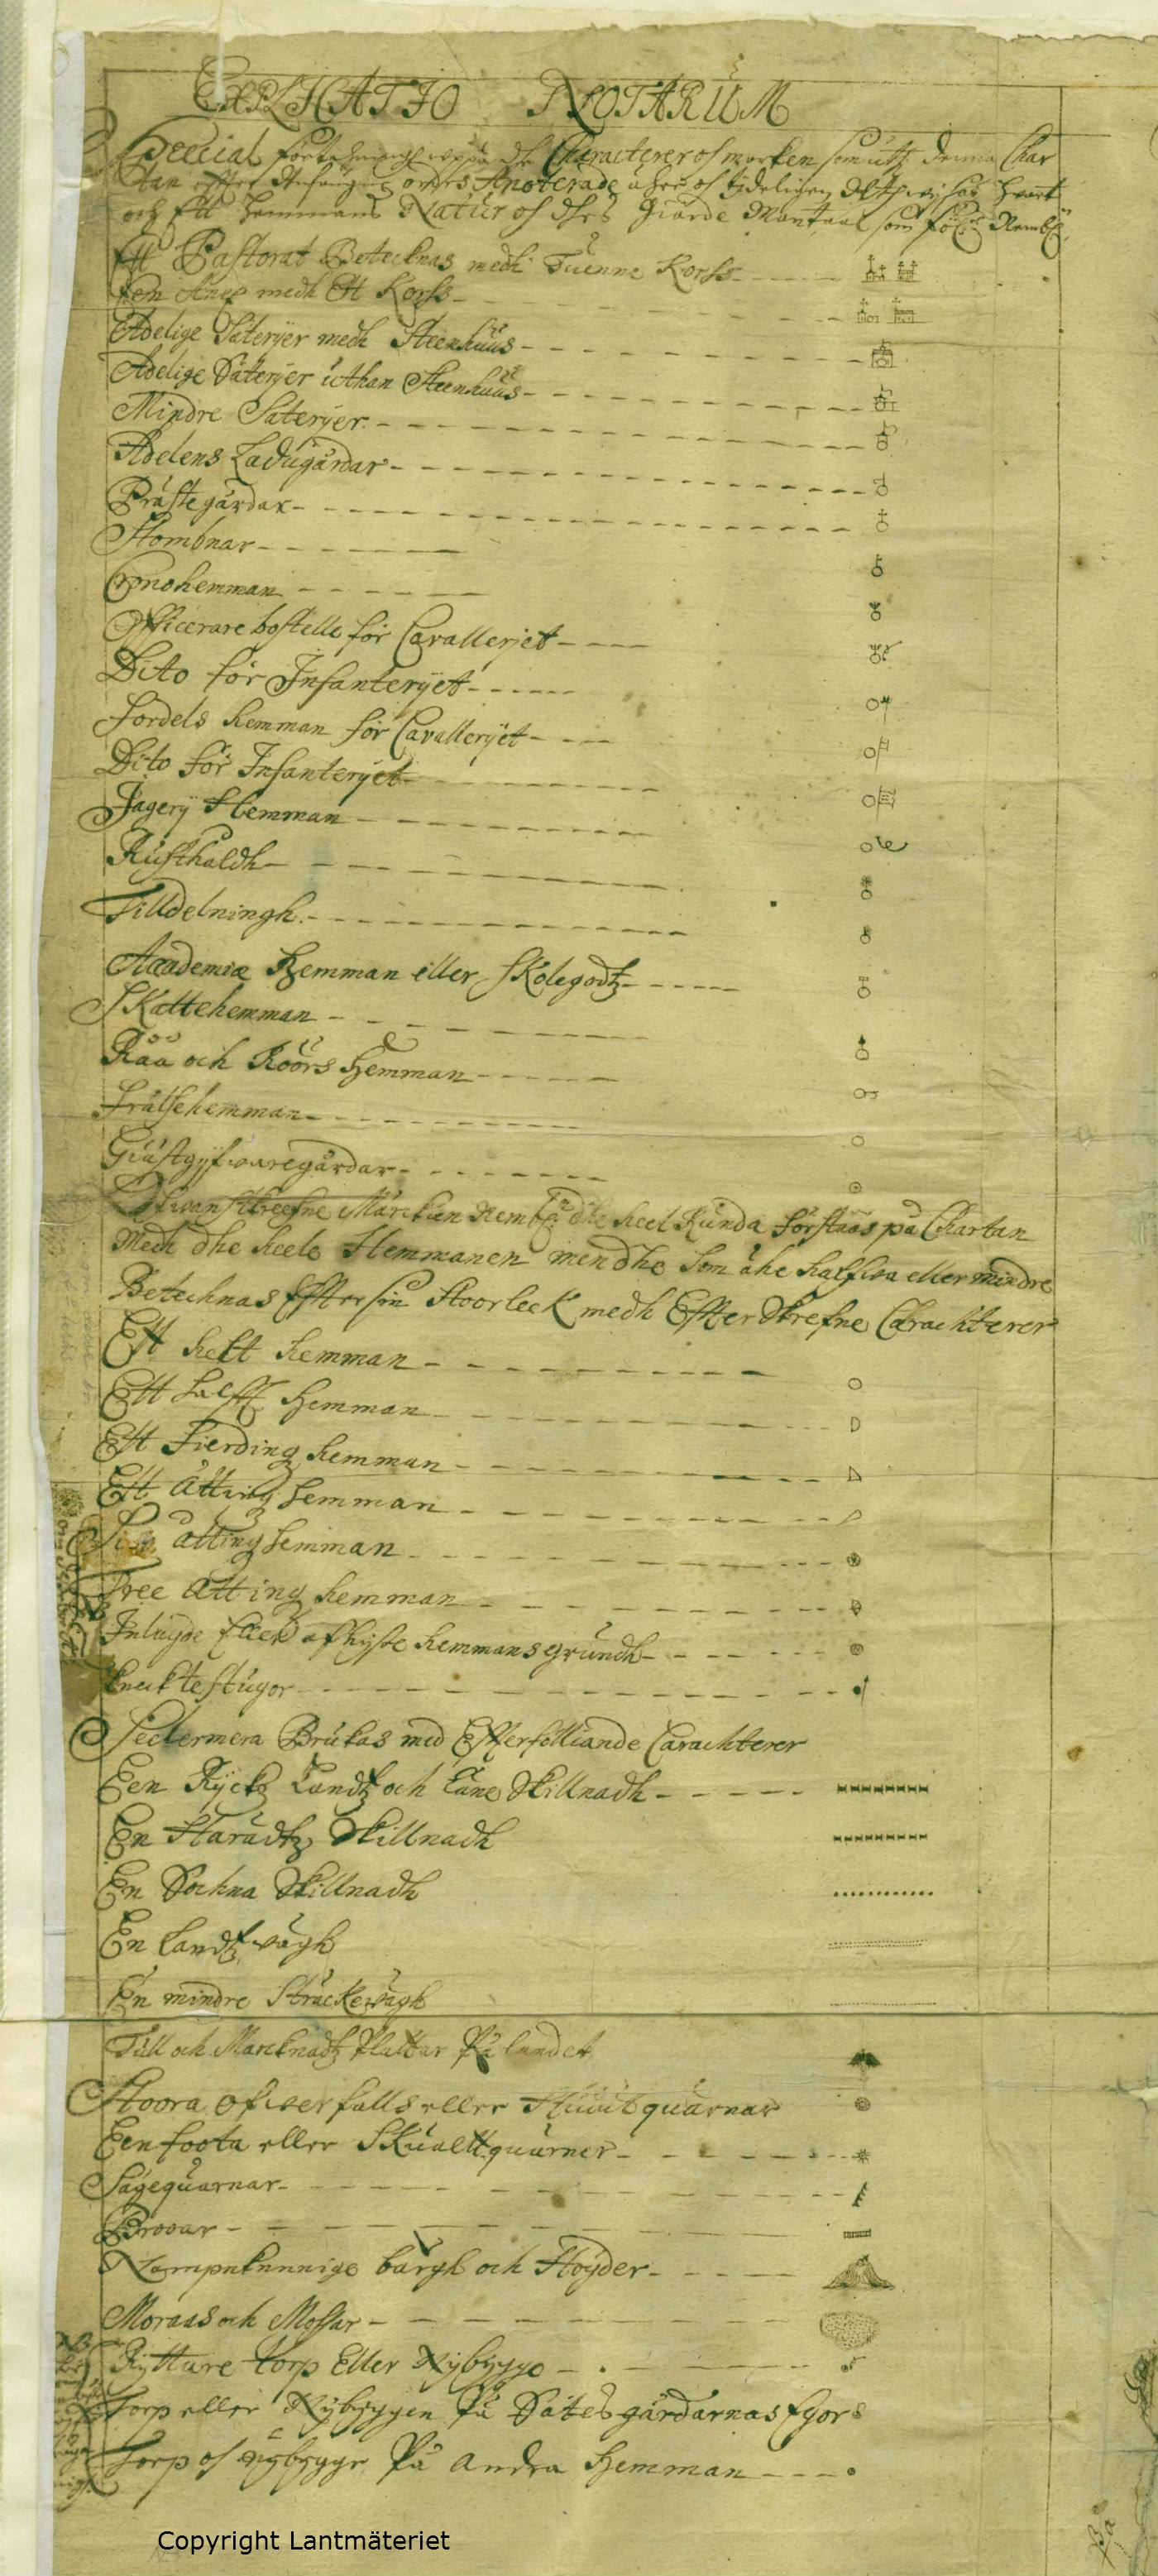 EXPLICATIO NOTARUM
Special förtekningh uppå dhe Characterer of merken som uthj denna Char
tan äre of tydeligen hvart
och Ett hemmans Natur of dhes Giärde Mantaal som föllier Nembl:
Ett Pastorat Betecknas medh Tuenne Korss
Een Anex medh Ett Korss
Adelige Säterijer medh Steenhüüs
Adelige Säterijer uthan Steenhüüs
Mindre Säterijer
Adelens Ladugårdar
Prästegårdar
Stombnar
Cronohemman
Officerare bostelle för Cavallerjet
Dito för Infanterijet
Fordels hemman för Cavallerijet
Dito för Infanterijet
Jägerij Hemman
Rusthåldh
Tilldelningh
Academiæ Hemman eller Skolegodtz
Skattehemman
Råå och Röörs Hemman
Frälsehemman
Giästgijfwaregårdar
Ofwanskreefne Märcken Nembl: dhe heel Runda förstååss på Chartan
Medh dhe heele Hemmanen men dhe som ähe halfwa eller mindre
Betechnas Effter sin Stoorleek medh Effter Skrefne Carachterer
Ett helt hemman
Ett halfft Hemman
Ett Fierding hemman
Ett Åtting hemman
åtting hemman
Tree Åtting hemman
Inlagde Eller afhyste hemmans grundh
Kneckte stugor
Sedermera Brukas med Efterfölliande Carachterer
Een Ryckz Landtz och Läne Skillnadh
En Häradtz Skillnadh
En Sochna Skillnadh
En Landtzwägh
En mindre Sträckewägh
Tull och Marcknadtz Plattar På landet
Stoora öfwerfalls eller Huuutquarnar
Een foota eller Skualttquarner
Sågequarnar
Brooar
Nampnkunnige bärgh och Höyder
Morass och Mossar
Ryttare torp Eller Nybygge
Torp eller Nybyggen På Sätesgårdarnas Egor
Torp of nybygge På andra Hemman
Copyright Lantmäteriet